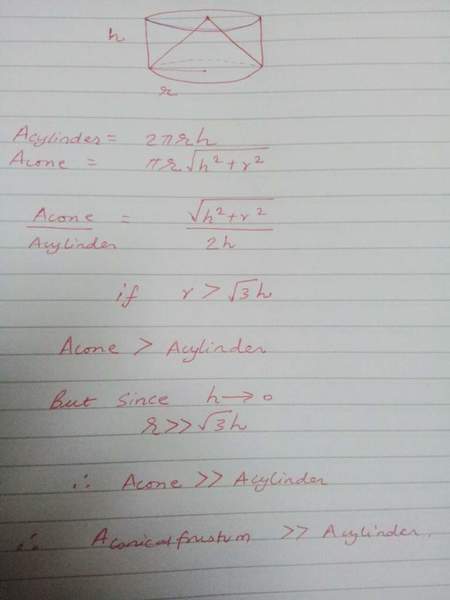 h
r
Acylinder = 2πrh
Acone = πr√h²+r²
Acone = √h²+r²
Acylinder 2h
if r > √3h
Acone > Acylinder
But since h → 0
r >> √3h
∴ Acone >> Acylinder
∴ Aconicalfrustum >> Acylinder.